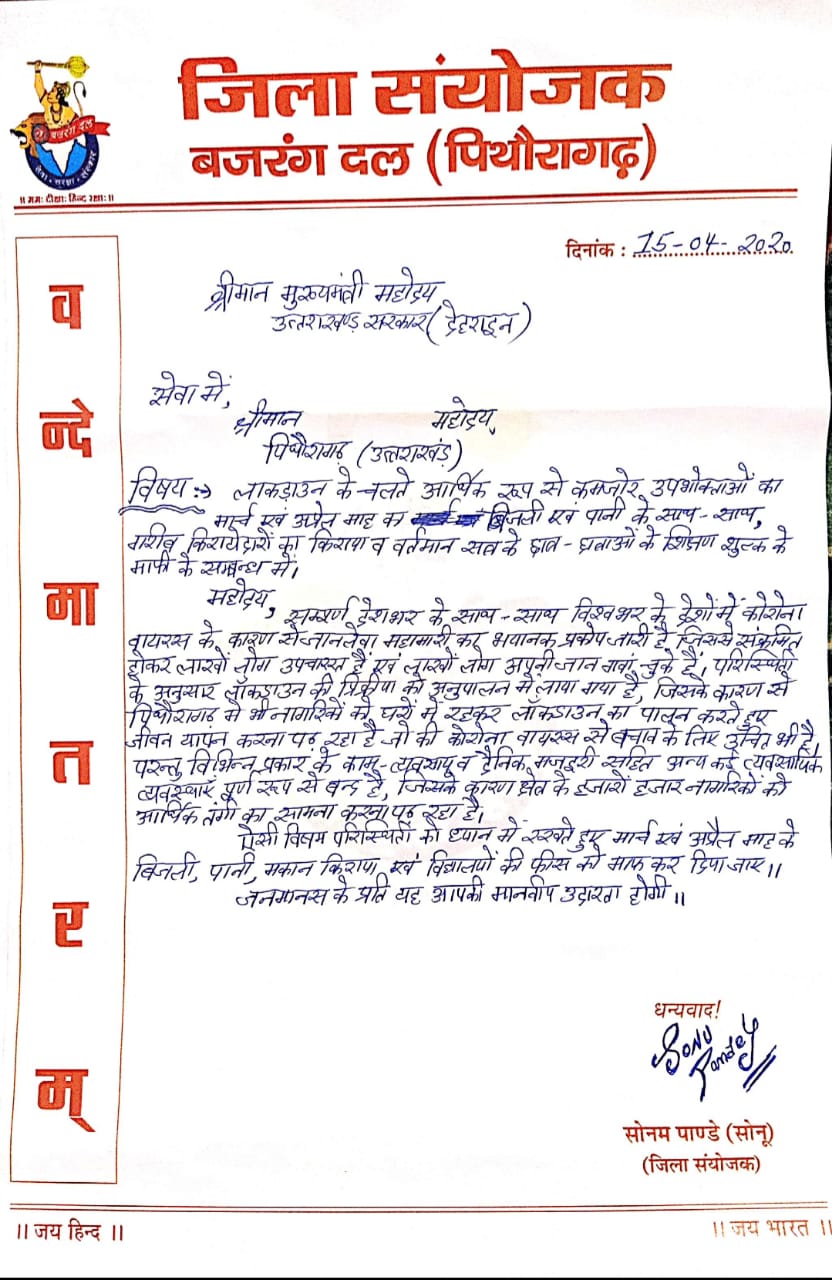 जिला संयोजक
बजरंग दल (पिथौरागढ़)
बजरंग दल
सेवा • सुरक्षा • संस्कार
दिनांक : 15-04-2020
श्रीमान मुख्यमंत्री महोदय
उत्तराखण्ड सरकार (देहरादून)
सेवा में,
श्रीमान महोदय,
पिथौरागढ़ (उत्तराखंड)
विषय :-> लाकडाउन के चलते आर्थिक रूप से कमजोर उपभोक्ताओं का
मार्च एवं अप्रैल माह का बिजली एवं पानी के साथ-साथ,
गरीब किरायेदारों का किराया व वर्तमान सत्र के छात्र-छात्राओं के शिक्षण शुल्क के
माफी के सम्बन्ध में।
महोदय,
सम्पूर्ण देशभर के साथ-साथ विश्वभर के देशों में कोरोना
वायरस के कारण से जानलेवा महामारी का भयानक प्रकोप जारी है, जिससे संक्रमित
होकर लाखों लोग उपचारत है एवं लाखों लोग अपनी जान गवां चुके हैं। परिस्थिती
के अनुसार लॉकडाउन की प्रक्रिया को अनुपालन में लाया गया है, जिसके कारण से
पिथौरागढ़ में भी नागरिकों को घरों में रहकर लॉकडाउन का पालन करते हुए
जीवन यापन करना पढ़ रहा है जो की कोरोना वायरस से बचाव के लिए उचित भी है,
परन्तु विभिन्न प्रकार के काम-व्यवसाय व दैनिक मजदूरी सहित अन्य कई व्यवसायिक
व्यवस्थाएं पूर्ण रूप से बन्द है, जिसके कारण क्षेत्र के हजारों हजार नागरिकों को
आर्थिक तंगी का सामना करना पढ़ रहा है।
ऐसी विषम परिस्थिती को ध्यान में रखते हुए मार्च एवं अप्रैल माह के
बिजली, पानी, मकान किराया एवं विद्यालयों की फीस को माफ कर दिया जाए।।
जनमानस के प्रति यह आपकी मानवीय उदारता होगी।।
धन्यवाद!
Sonu
Pandey
सोनम पाण्डे (सोनू)
(जिला संयोजक)
व
न्दे
मा
त
र
म्
।। जय हिन्द ।।
।। जय भारत ।।